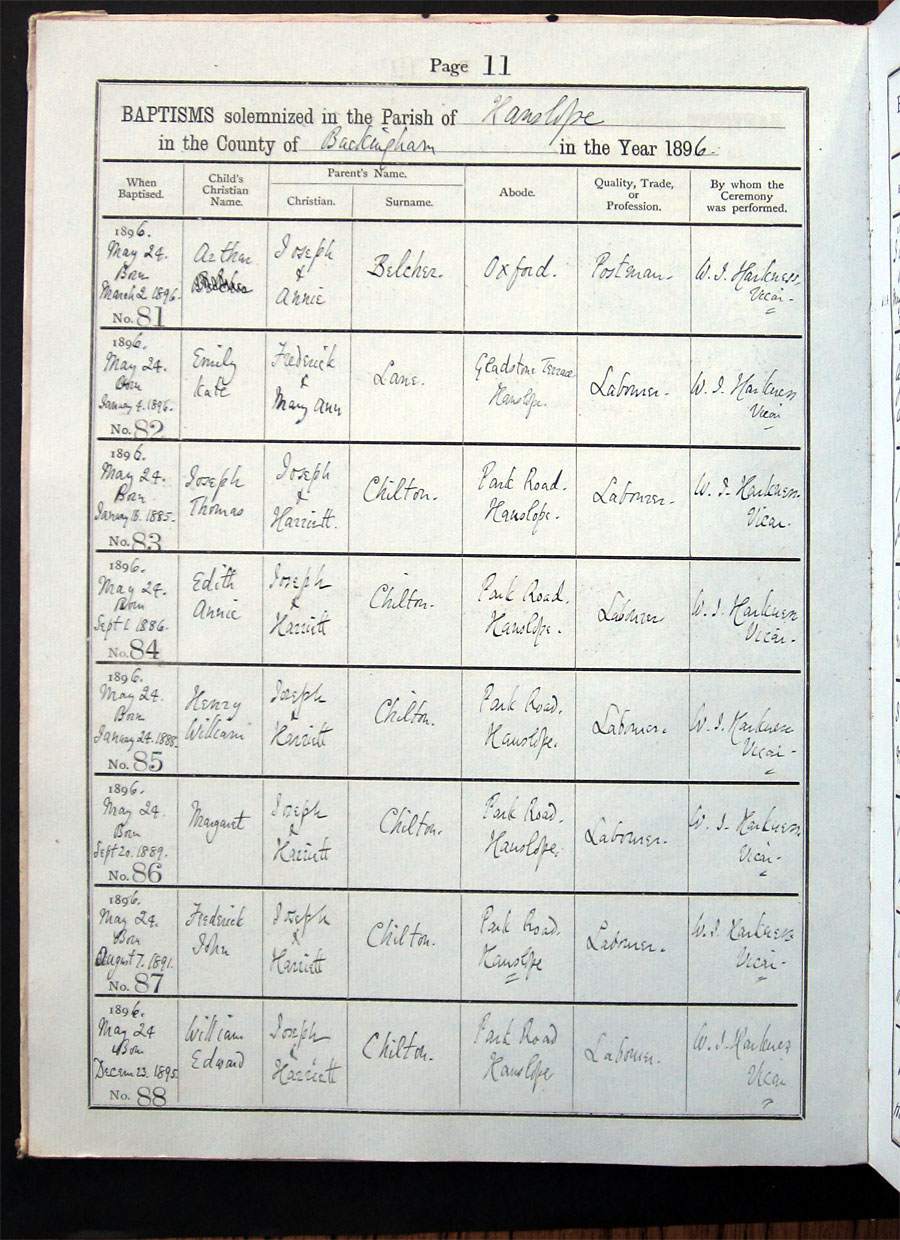 Page 11
BAPTISMS solemnized in the Parish of Hanslope
in the County of Buckingham in the Year 1896.
When Baptised. Child's Christian Name. Parent's Name. Christian. Surname. Abode. Quality, Trade, or Profession. By whom the Ceremony was performed.
1896.
May 24. Born March 2 1896. No. 81 Arthur Joseph & Annie Belcher. Oxford. Postman. W. J. Harkness, Vicar.
1896.
May 24. Born January 4. 1896. No. 82 Emily Kate Frederick & Mary Ann Lane. Gladstone Terrace Hanslope. Labourer. W. J. Harkness Vicar
1896.
May 24. Born January 13. 1885. No. 83 Joseph Thomas Joseph & Harriett. Chilton. Park Road. Hanslope. Labourer. W. J. Harkness Vicar.
1896.
May 24. Born Sept 1 1886. No. 84 Edith Annie Joseph & Harriett Chilton. Park Road. Hanslope. Labourer W. J. Harkness Vicar.
1896.
May 24. Born January 24. 1888. No. 85 Henry William Joseph & Harriett Chilton. Park Road. Hanslope. Labourer. W. J. Harkness Vicar
1896.
May 24. Born Sept 20. 1889. No. 86 Margaret Joseph & Harriett Chilton. Park Road. Hanslope. Labourer. W. J. Harkness Vicar
1896.
May 24. Born August 7. 1891. No. 87 Frederick John Joseph & Harriett Chilton. Park Road. Hanslope Labourer. W. J. Harkness Vicar
1896.
May 24 Born Decem 23. 1895 No. 88 William Edward Joseph & Harriett Chilton. Park Road Hanslope Labourer. W. J. Harkness Vicar